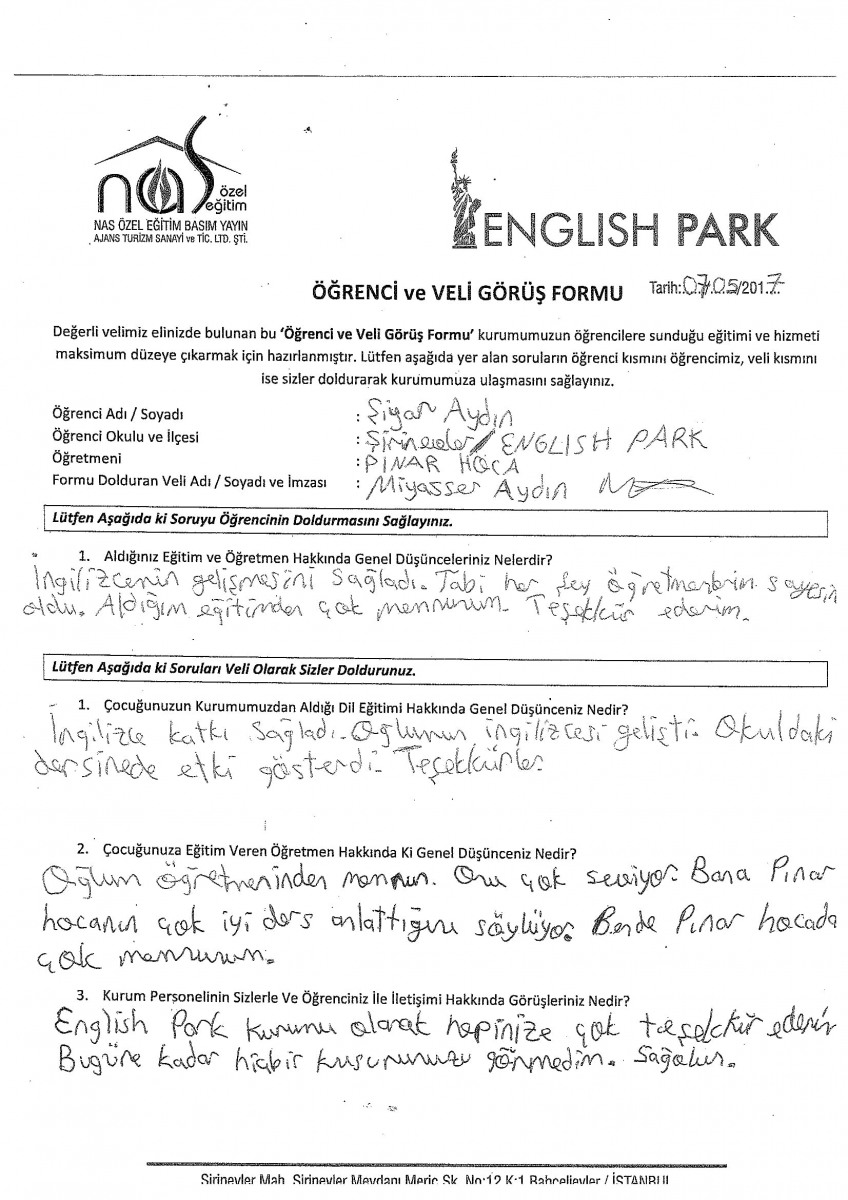 nas özel eğitim
NAS ÖZEL EĞİTİM BASIM YAYIN
AJANS TURİZM SANAYİ ve TİC. LTD. ŞTİ.
ENGLISH PARK
ÖĞRENCİ ve VELİ GÖRÜŞ FORMU Tarih:07/05/2017
Değerli velimiz elinizde bulunan bu 'Öğrenci ve Veli Görüş Formu' kurumumuzun öğrencilere sunduğu eğitimi ve hizmeti
maksimum düzeye çıkarmak için hazırlanmıştır. Lütfen aşağıda yer alan soruların öğrenci kısmını öğrencimiz, veli kısmını
ise sizler doldurarak kurumumuza ulaşmasını sağlayınız.
Öğrenci Adı / Soyadı : Şiyar Aydın
Öğrenci Okulu ve İlçesi : Şirinevler / ENGLISH PARK
Öğretmeni : PINAR HOCA
Formu Dolduran Veli Adı / Soyadı ve İmzası : Miyasser Aydın
Lütfen Aşağıda ki Soruyu Öğrencinin Doldurmasını Sağlayınız.
1. Aldığınız Eğitim ve Öğretmen Hakkında Genel Düşünceleriniz Nelerdir?
İngilizcenin gelişmesini sağladı. Tabi her şey öğretmenlerin sayesin
oldu. Aldığım eğitimden çok memnunum. Teşekkür ederim.
Lütfen Aşağıda ki Soruları Veli Olarak Sizler Doldurunuz.
1. Çocuğunuzun Kurumumuzdan Aldığı Dil Eğitimi Hakkında Genel Düşünceniz Nedir?
İngilizce katkı sağladı. Oğlumun ingilizcesi gelişti. Okuldaki
dersinede etki gösterdi. Teşekkürler
2. Çocuğunuza Eğitim Veren Öğretmen Hakkında Ki Genel Düşünceniz Nedir?
Oğlum öğretmeninden memnun. Onu çok seviyor. Bana Pınar
hocanın çok iyi ders anlattığını söylüyor. Bende Pınar hocada
çok memnunum.
3. Kurum Personelinin Sizlerle Ve Öğrenciniz İle İletişimi Hakkında Görüşleriniz Nedir?
English Park kurumu olarak hepinize çok teşekkür ederir
Bugüne kadar hiçbir kusurunuzu görmedim. Sağolun.
Şirinevler Mah. Şirinevler Meydanı Meriç Sk. No:12 K:1 Bahçelievler / İSTANBUL